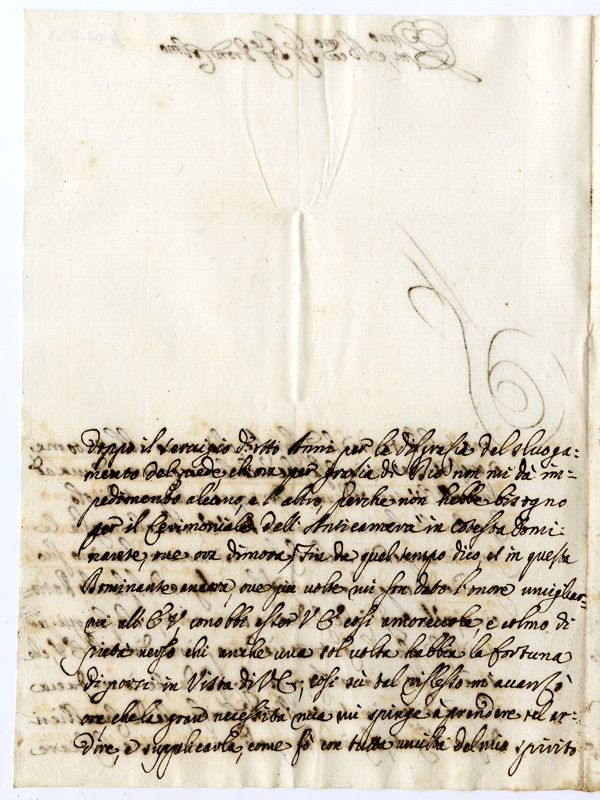 doppo il servigio d'otto Anni per la disgrasia del sluoga-
mento del piede che ora per grasia di Dio non mi dà im-
pedimento alcuno, e l'altro, perche non hebbe bisogno
per il Cerimoniale dell'Anticamera in cotesta Domi-
nante, ove ora dimora; Fin da quel tempo dico et in questa
Dominante ancora, ove più volte mi son dato l'onore umigliar-
mi all' E V conobbi esser V E così amorevole, e colmo di
pietà verso chi anche una sol volta habbia la fortuna
di porsi in Vista di V E, così su tal riflesso mi avanzò
ora che la gran necessità mia mi spinge à prendere tal ar-
dire, e supplicarla, come fò con tutta umiltà del mio spirito